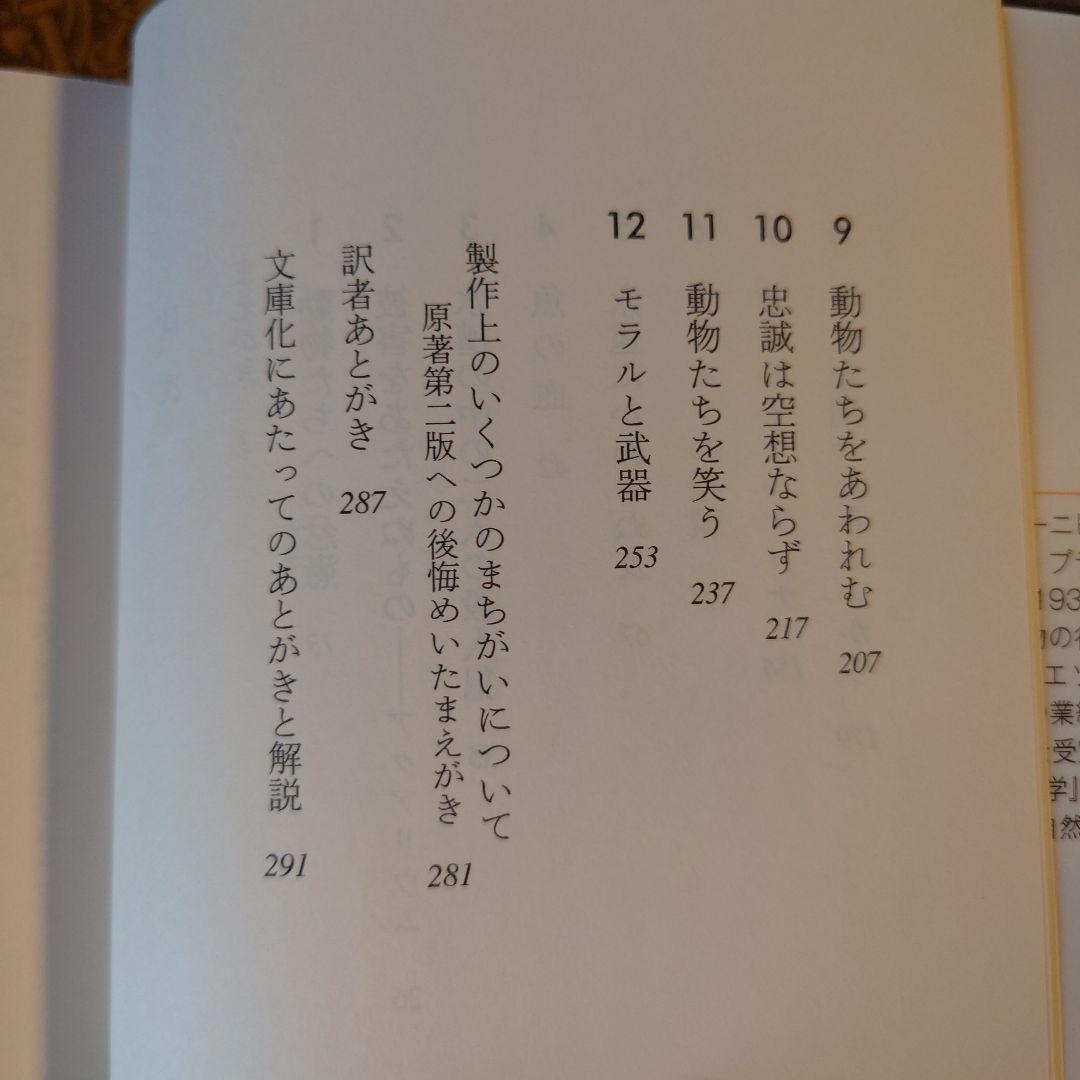 9 動物たちをあわれむ 207
10 忠誠は空想ならず 217
11 動物たちを笑う 237
12 モラルと武器 253
製作上のいくつかのまちがいについて
原著第二版への後悔めいたまえがき 281
訳者あとがき 287
文庫化にあたってのあとがきと解説 291